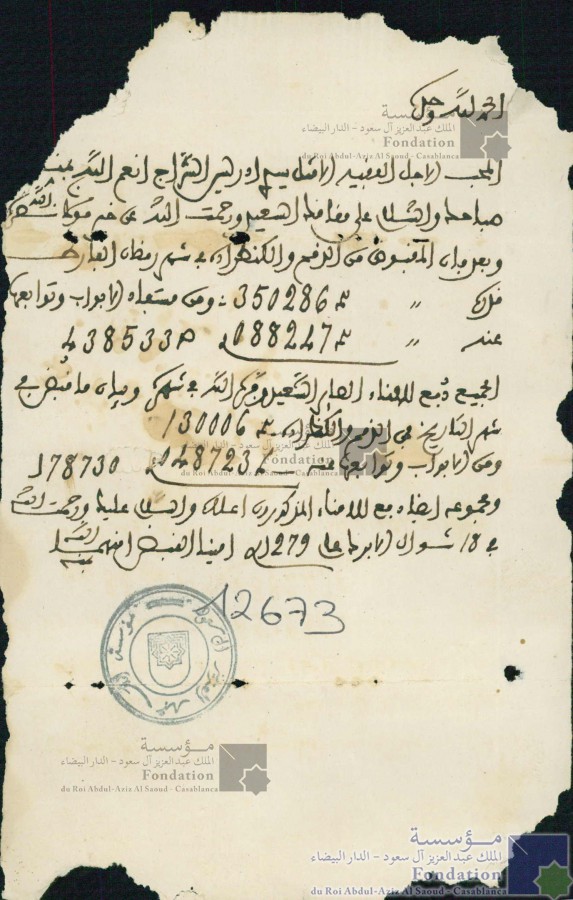 الحمد لله وحده
المحب الاجل الفقيه الامثل سيدي ادريس السراج انعم الله
صباحك والسلام على مقامك السعيد ورحمت الله عن خير مولانا نصره الله
وبعد بيان المقبوض من الترفع والكنطرادة في شهر رمضان الفارط
فلان " 350286 ومن مستفاد الابواب وتوابعها
عنه " 088247 438533
الجميع دفع للامناء السعيد الله في شهره وبيان ما قبض في
شهر التاريخ من الترفع والكنطرادة 130006
ومن الابواب وتوابعها عنه 048723 178730
ومجموعه ايضا دفع للامناء المذكورين اعلاه والسلام عليك ورحمت الله
في 18 شوال الابرك عام 1279 امينا القبض
12673
مؤسسة
الملك عبدالعزيز آل سعود - الدار البيضاء
Fondation
du Roi Abdul-Aziz Al Saoud - Casablanca
مؤسسة
الملك عبدالعزيز آل سعود - الدار البيضاء
Fondation
du Roi Abdul-Aziz Al Saoud - Casablanca
مؤسسة
الملك عبدالعزيز آل سعود - الدار البيضاء
Fondation
du Roi Abdul-Aziz Al Saoud - Casablanca
مؤسسة
الملك عبدالعزيز آل سعود - الدار البيضاء
Fondation
du Roi Abdul-Aziz Al Saoud - Casablanca